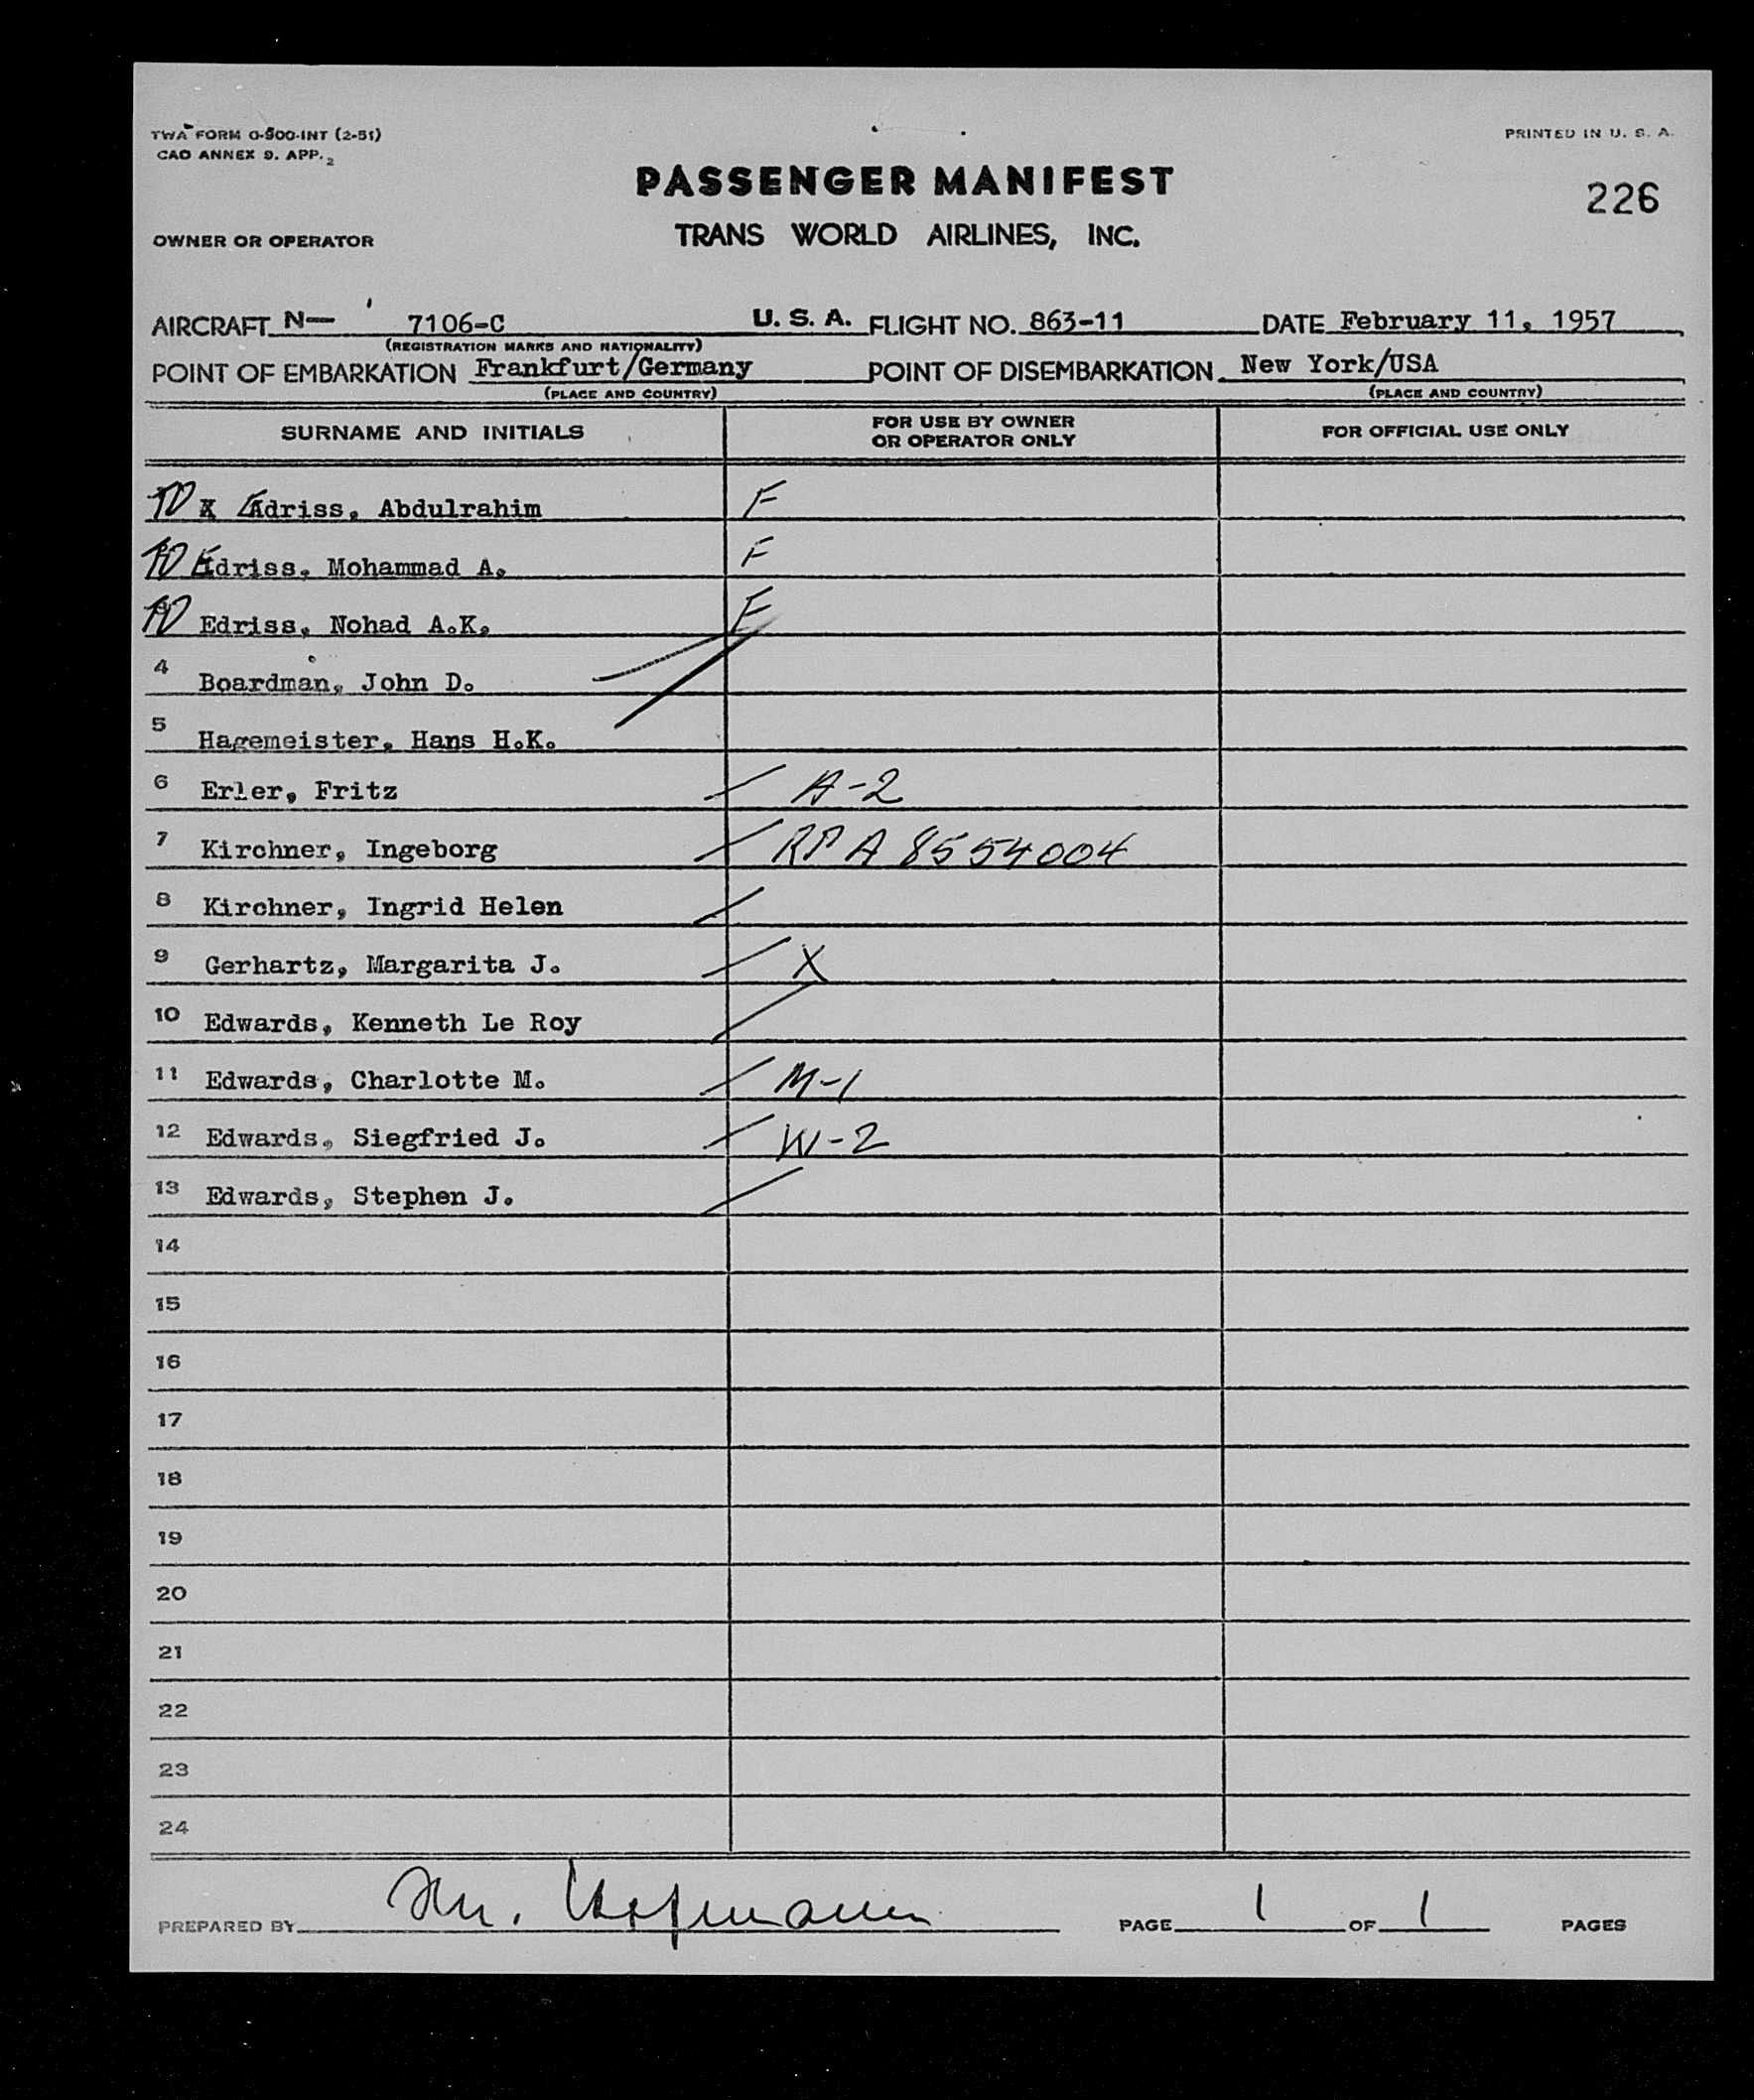 TWA FORM O-500-INT (2-51)
CAO ANNEX 9. APP. 2
PRINTED IN U. S. A.
PASSENGER MANIFEST
226
OWNER OR OPERATOR
TRANS WORLD AIRLINES, INC.
AIRCRAFT N— 7106-C U. S. A. FLIGHT NO. 863-11 DATE February 11, 1957
(REGISTRATION MARKS AND NATIONALITY)
POINT OF EMBARKATION Frankfurt/Germany POINT OF DISEMBARKATION New York/USA
(PLACE AND COUNTRY) (PLACE AND COUNTRY)
SURNAME AND INITIALS FOR USE BY OWNER OR OPERATOR ONLY FOR OFFICIAL USE ONLY
Edriss, Abdulrahim F
Edriss, Mohammad A. F
Edriss, Nohad A.K. F
4 Boardman, John D.
5 Hagemeister, Hans H.K.
6 Erler, Fritz A-2
7 Kirchner, Ingeborg RP A 8554004
8 Kirchner, Ingrid Helen
9 Gerhartz, Margarita J. X
10 Edwards, Kenneth Le Roy
11 Edwards, Charlotte M. M-1
12 Edwards, Siegfried J. W-2
13 Edwards, Stephen J.
14
15
16
17
18
19
20
21
22
23
24
PREPARED BY PAGE 1 OF 1 PAGES